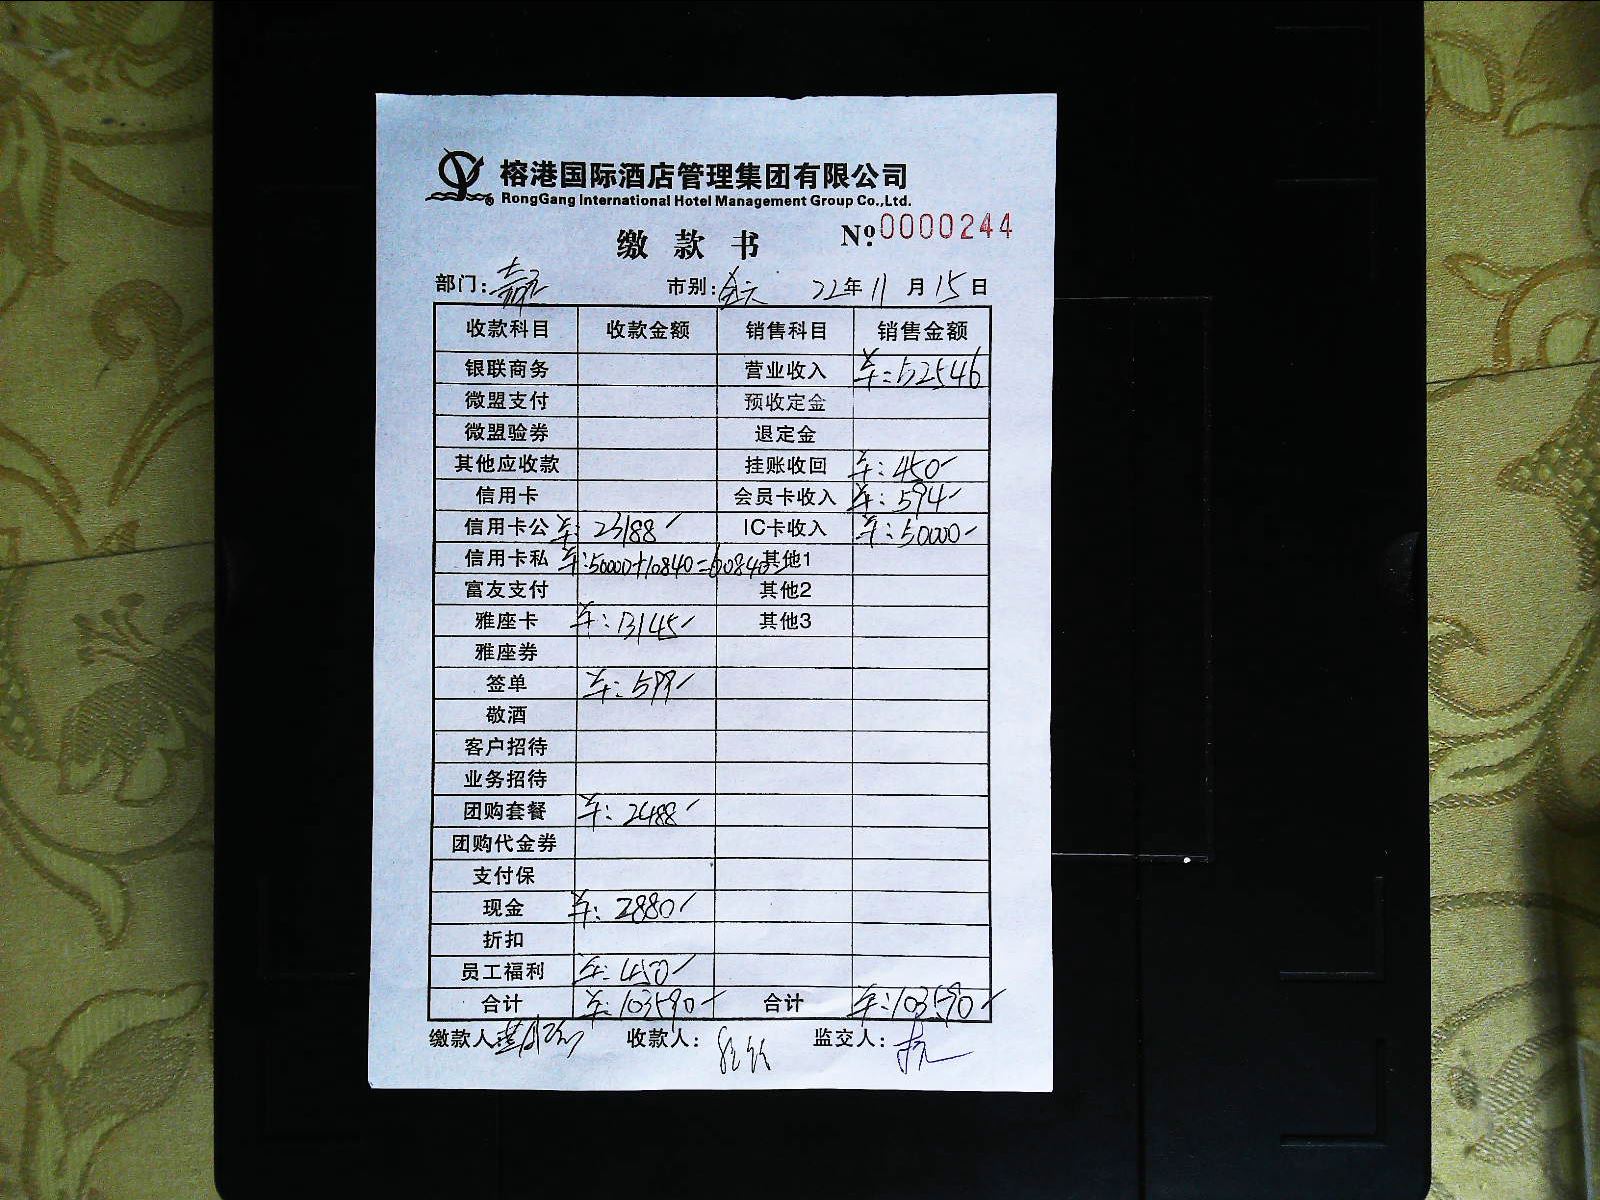 榕港国际酒店管理集团有限公司
RongGang International Hotel Management Group Co.,Ltd.
缴款书 №0000244
部门: 市别:全天 22年11月15日
收款科目 收款金额 销售科目 销售金额
银联商务 营业收入 ¥:52546
微盟支付 预收定金
微盟验券 退定金
其他应收款 挂账收回 ¥:450-
信用卡 会员卡收入 ¥:594-
信用卡公 ¥:23188- IC卡收入 ¥:50000-
信用卡私 ¥:50000+10840=60840 其他1
富友支付 其他2
雅座卡 ¥:13145- 其他3
雅座券
签单 ¥:599-
敬酒
客户招待
业务招待
团购套餐 ¥:2488-
团购代金券
支付保
现金 ¥:2880-
折扣
员工福利 ¥:450-
合计 ¥:103590- 合计 ¥:103590-
缴款人 收款人: 监交人: